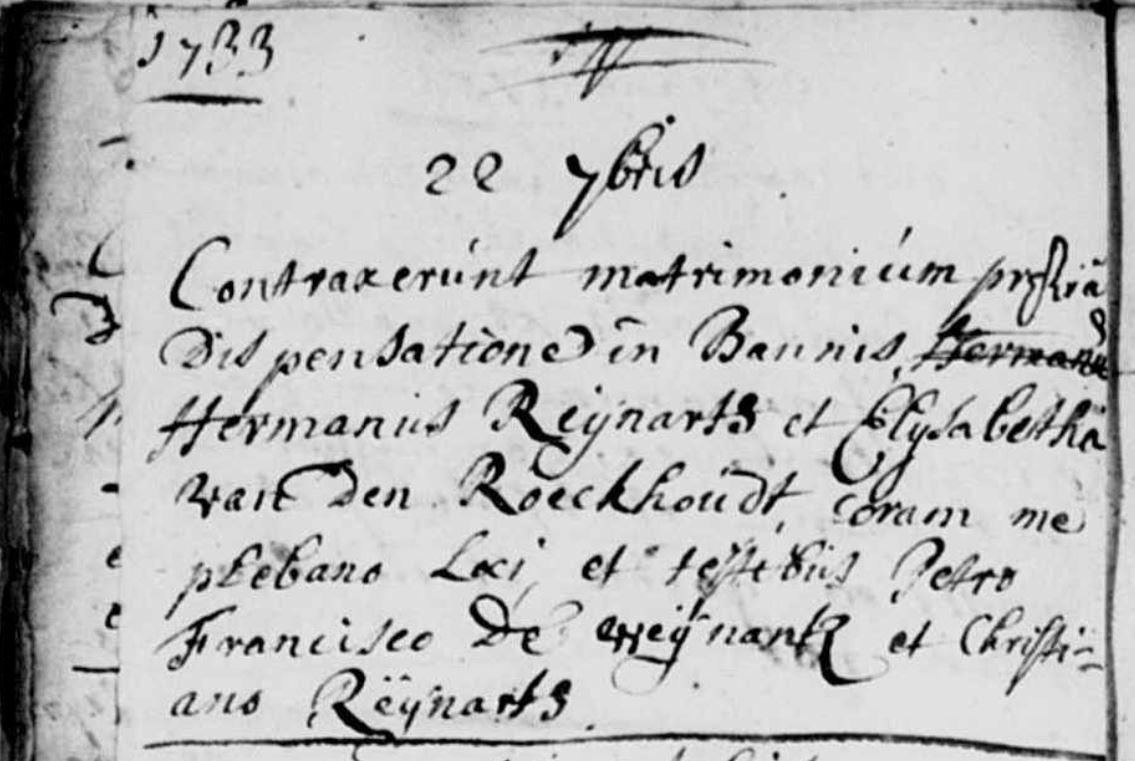 1733
22 7bris
Contraxerunt matrimonium
Dispensatione in Bannis,
Hermanus Reÿnarts et Elysabetha
van den Roeckhoudt, coram me
plebano Loci, et testibus Petro
Francisco De weÿnantz et Christi=
ano Reÿnarts.